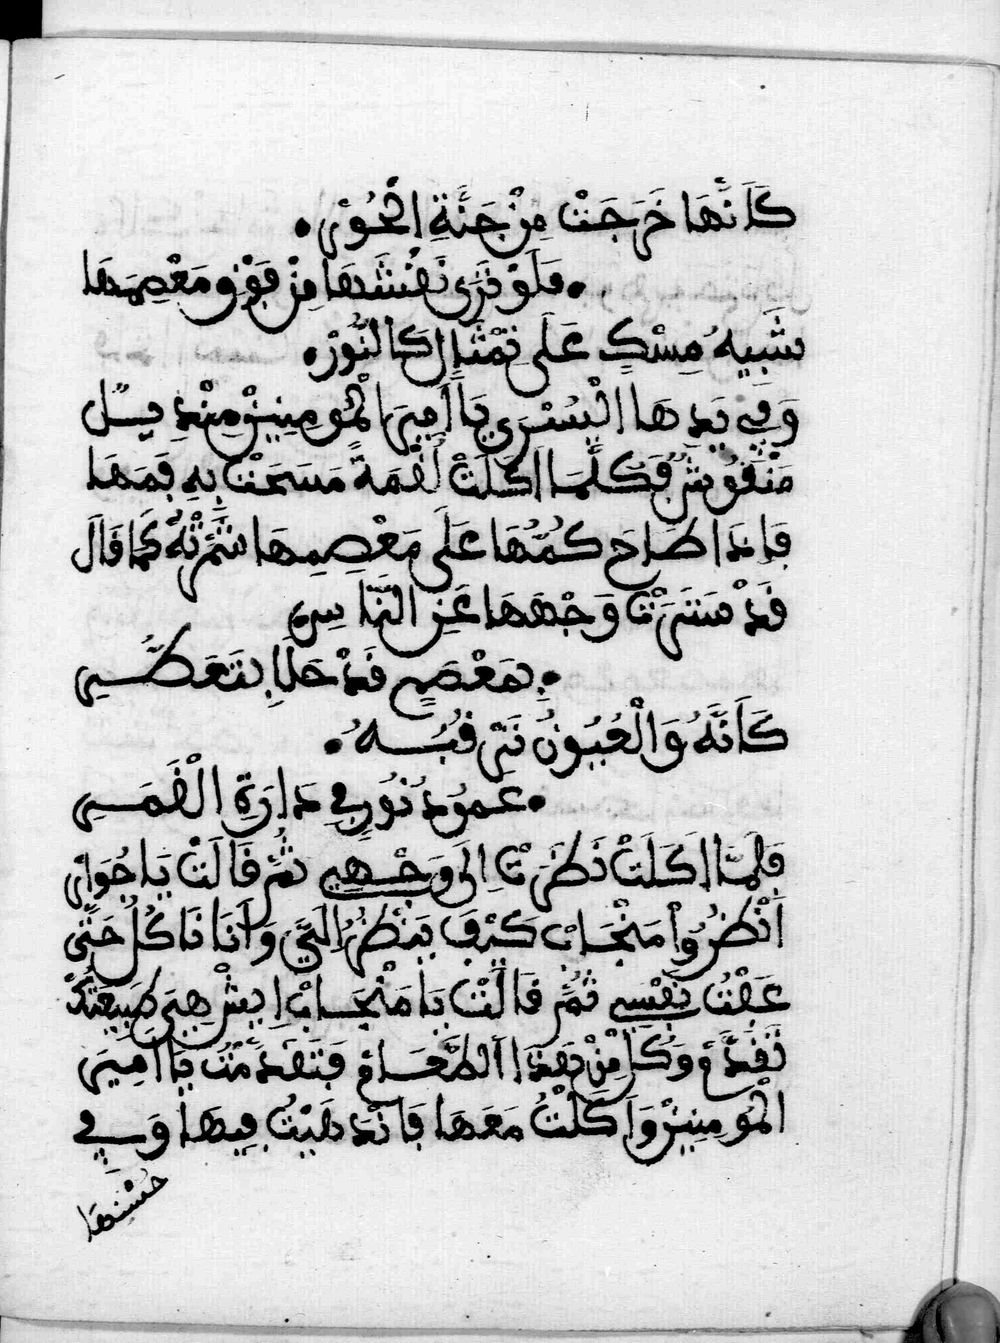 كَأَنَّهَا خَرَجَتْ مِنْ جَنَّةِ الْحُورْ •
• فَلَوْ تَرَى نَقْشَهَا مِنْ فَوْقِ مَعْصِمِهَا
شَبِيهُ مِسْكٍ عَلَى تِمْثَالٍ كَالنُّورْ •
وَفِي يَدِهَا الْيُسْرَى يَا أَمِيرَ الْمُومِنِينْ مِنْدِيلْ
مَنْقُوشْ فَكُلَّمَا أَكَلَتْ لُقْمَةً مَسَحَتْ بِهِ فَمَهَا
فَإِذَا طَاحَ كُمُّهَا عَلَى مَعْصِمِهَا شَمَّرَتْهُ كَمَا قَالَ
قَدْ سَتَرَتْ وَجْهَهَا عَنِ النَّاسِ
• بِمَعْصَمٍ قَدْ حَلَا بِتَعَطُّرِ
كَأَنَّهُ وَالْعُيُونُ تَرْقُبُهُ •
• عَمُودُ نُورٍ فِي دَارَةِ الْقَمَرِ
فَلَمَّا أَكَلَتْ نَظَرَتْ إِلَى وَجْهِي ثُمَّ قَالَتْ يَا جَوَارِ
أَنْظُرُوا مَنْجَابْ كَيْفَ يَنْظُرُ إِلَيَّ وَأَنَا نَاكُلُ حَتَّى
عَقْتُ نَفْسِي ثُمَّ قَالَتْ يَا مَنْجَابْ إِيشْ هِيَ طَبِيعَتُكْ
تَقَدَّمْ وَكُلْ مِنْ هَذَا الطَّعَامْ فَتَقَدَّمْتُ يَا أَمِيرَ
الْمُومِنِينْ وَأَكَلْتُ مَعَهَا فَانْدَهَيْتُ فِيهَا وَفِي
حُسْنِهَا